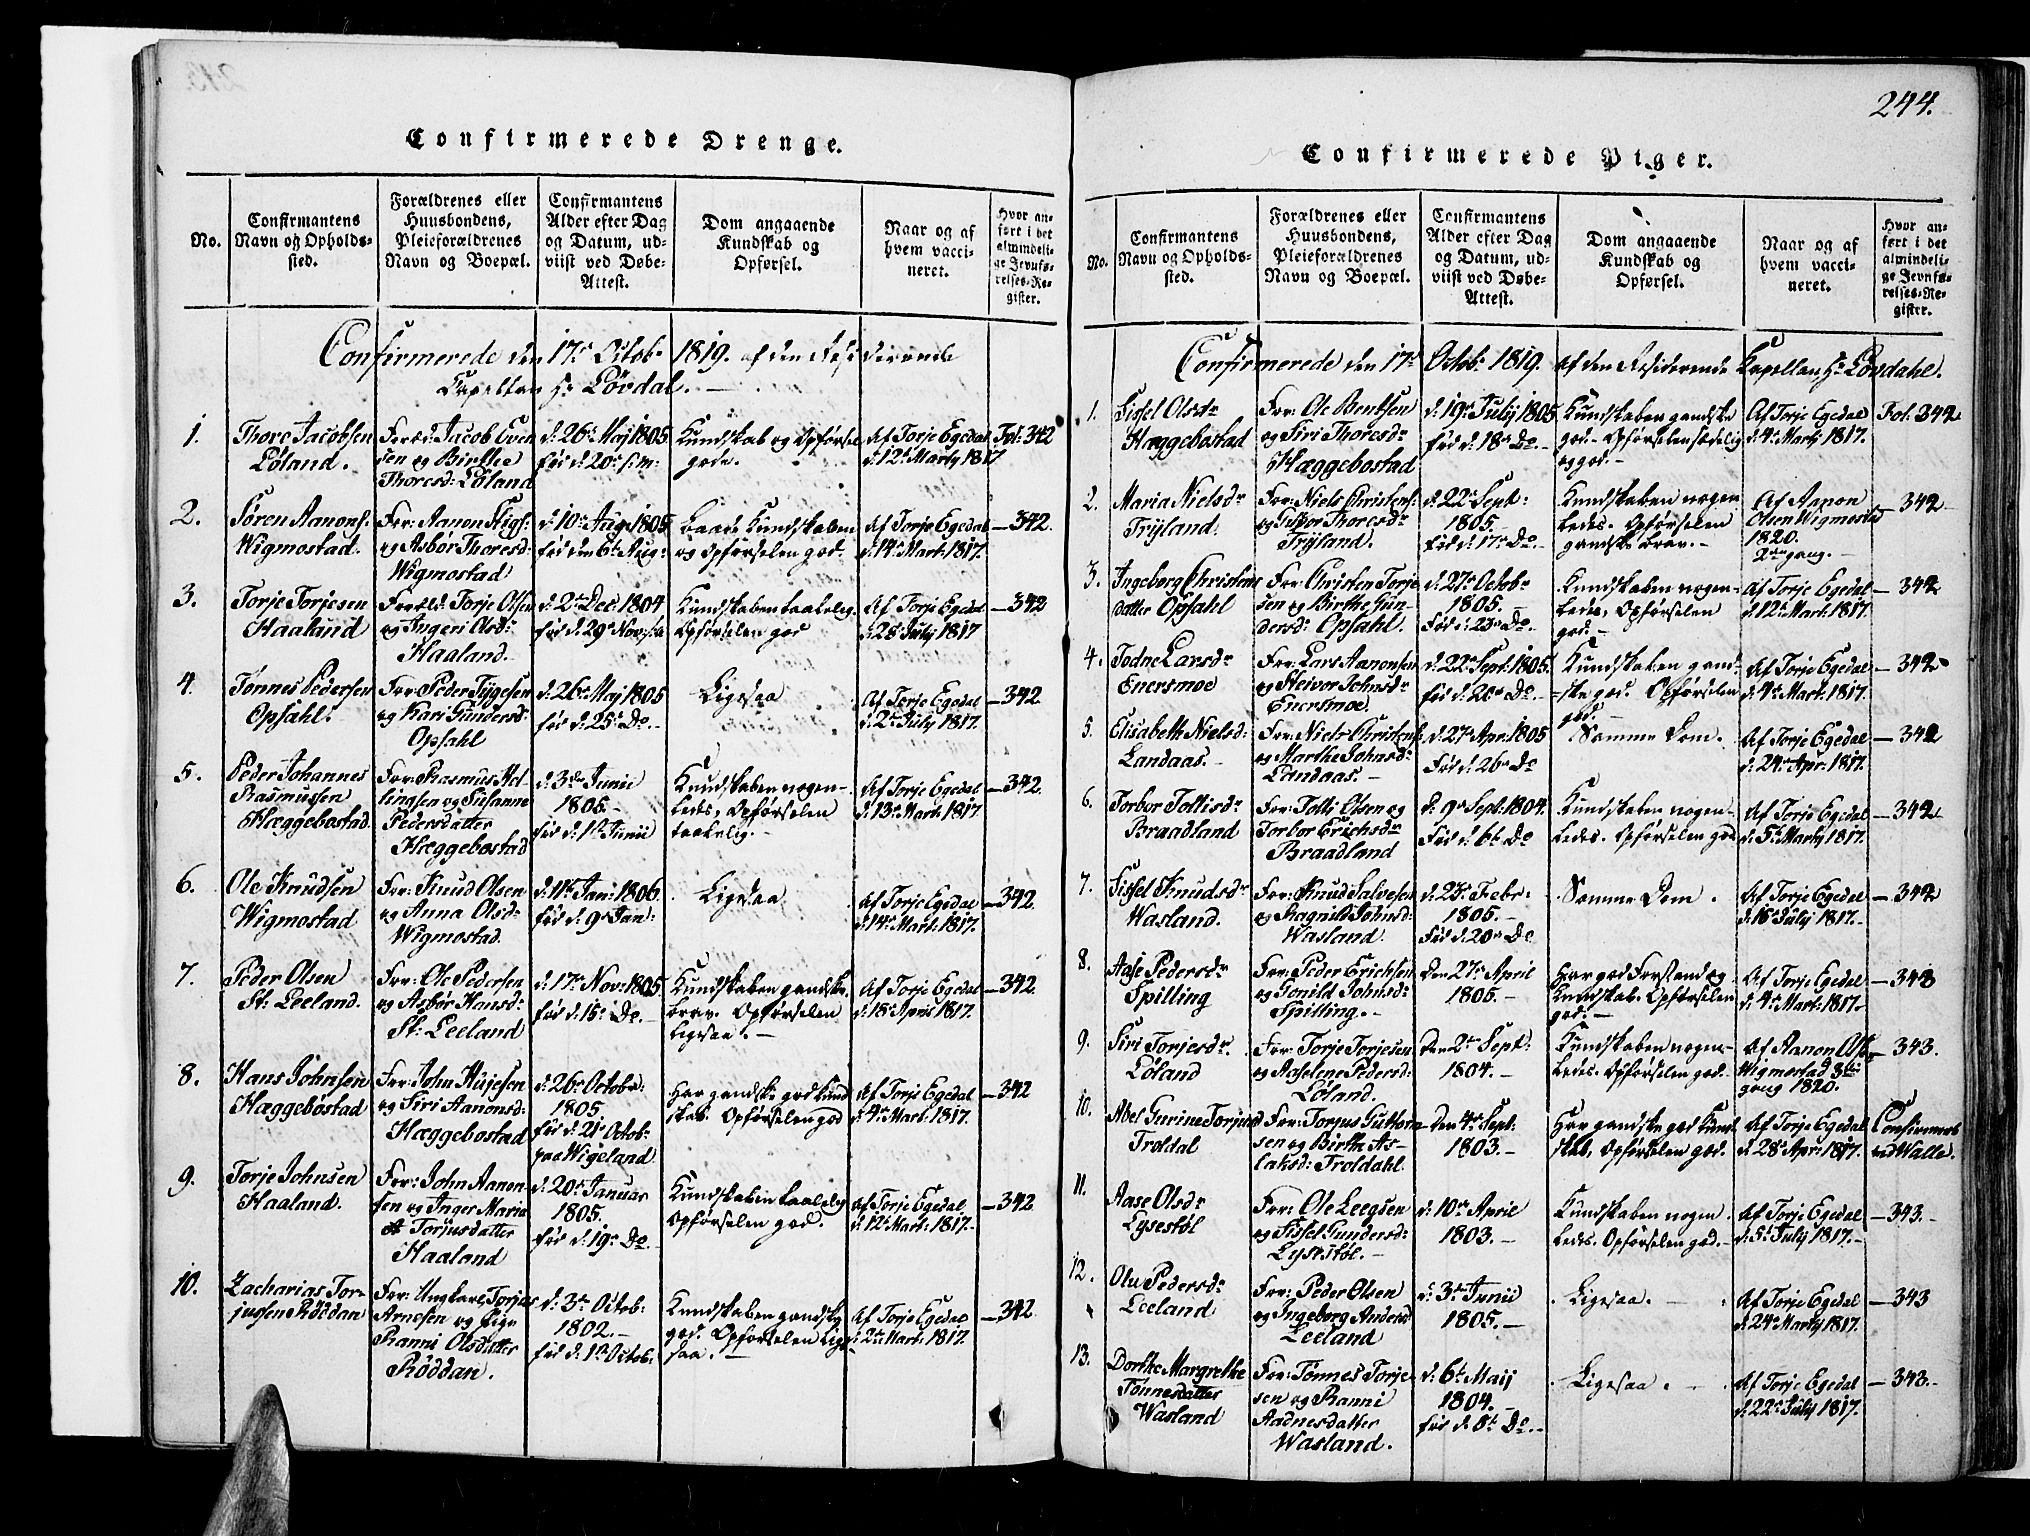 244.
Confirmerede Drenge.
No.
Confirmantens
Navn og Opholds-
sted.
Forældrenes eller
Huusbondens,
Pleieforældrenes
Navn og Boepæl.
Confirmantens
Alder efter Dag
og Datum, ud-
viist ved Døbe-
Attest.
Dom angaaende
Kundskab og
Opførsel.
Naar og af
hvem vacci-
neret.
Hvor an-
ført i det
almindeli-
ge Jevnfø-
relses-Re-
gister.
Confirmerede den 17de Octobr 1819. af den Residerende
Capellan Hr Lövdal.
1.
Thore Jacobsen
Løland.
Foræld: Jacob Even
sen og Birthe
Thoresd: Løland
d. 26de Maj 1805
fød d: 20de s: m:
Kundskab og Opførsel
gode.
Af Torje Egedal
d: 12te Marty 1817
Fol: 342
2.
Søren Aanons:
Wigmostad.
For: Aanon Stigs:
og Asbør Thoresd:
Wigmostad
d: 10de Aug: 1805
fød den 6te Aug:
Baade Kundskaben
og Opførselen god.
Af Torje Egedal
d: 14de Mart: 1817.
342.
3.
Torje Torjesen
Haaland
Foræld: Torje Olsen
og Ingeri Olsd:
Haaland.
d: 2den Dec: 1804
fød d: 29de Novbr:
Kundskaben taalelig.
Opførselen god
Af Torje Egedal
d: 28de July 1817
342
4.
Tønnes Pedersen
Opsahl.
For: Peder Tygesen
og Kari Gundersd:
Opsahl
d: 26de Maj 1805
fød d: 25de Do
Ligesaa
Af Torje Egedal
d: 2den July 1817.
342.
5.
Peder Johannes
Rasmussen
Hæggebostad.
For: Rasmus
og Susanne
Pedersdatter
Hæggebostad
d: 3die Junii
1805.
fød d: 1ste Junii
Kundskaben nogen-
ledes, Opførselen
taalelig.
Af Torje Egedal
d: 13de Mart: 1817.
342.
6.
Ole Knudsen
Wigmostad
For: Knud Olsen
og Anna Olsd:
Wigmostad.
d: 11te Jan: 1806.
fød d: 9de Jan:
Ligesaa
Af Torje Egedal
d: 14de Mart: 1817.
342.
7.
Peder Olsen
St: Leeland.
For: Ole Pedersen
og Asbør Hansd:
St: Leeland
d: 17de Nov: 1805.
fød d: 15de Do.
Kundskaben gandske
brav. Opførselen
ligesaa.
Af Torje Egedal
d: 18de April 1817.
342.
8.
Hans Johnsen
Hæggebøstad
For: John
og Siri Aanonsd:
Hæggebostad
d: 26de Octobr:
1805.
fød d: 21de Octob:
paa Wigeland
Har gandske god Kund
skab. Opførselen god
Af Torje Egedal
d: 4de Mart: 1817.
342
9.
Torje Johnsen
Haaland.
For: John Aanon-
sen og Inger Maria
Torjusdatter
Haaland
d: 20de Januar
1805.
fød d: 19de Do.
Kundskaben taalelig
Opførselen god.
Af Torje Egedal
d: 12te Mart: 1817.
342.
10.
Zacharias Tor-
jussen Röddan
For: Ungkarl Torjus
Arnesen og Pige
Ranni Olsdatter
Röddan.
d: 3die Octob:
1802.
fød d: 1ste Octob:
Kundskaben gandske
god. Opførselen lige-
saa.
Af Torje Egedal
d: 2den Mart: 1817.
342.
Confirmerede Piger.
No.
Confirmantens
Navn og Opholds-
sted.
Forældrenes eller
Huusbondens,
Pleieforældrenes
Navn og Boepæl.
Confirmantens
Alder efter Dag
og Datum, ud-
viist ved Døbe-
Attest.
Dom angaaende
Kundskab og
Opførsel.
Naar og af
hvem vacci-
neret.
Hvor an-
ført i det
almindeli-
ge Jevnfø-
relses-Re-
gister.
Confirmerede den 17de Octobr 1819. af den Residerende Kapellan Hr Lövdahl.
1.
Sissel Olsdr
Hæggebostad
For: Ole Bentsen
og Siri Thoresdr
Hæggebostad
d: 19de July 1805
fød d: 18de Do.
Kundskaben gandske
god. Opførselen sædelig
og god.
Af Torje Egedal
d: 4de Marty 1817.
Fol. 342
2.
Maria Nielsdr
Tryland.
For: Niels Christens:
og Thoresdr
Tryland.
d: 22de Sept:
1805.
fød d: 17de Do.
Kundskaben nogen
ledes. Opførselen
gandske brav.
Af Aanon
Olsen Wigmosta
1820.
2den gang.
342
3.
Ingeborg Christens
datter Opsahl
For: Christen Torje
sen og Birthe Gun
dersd: Opsahl.
d: 27de Octobr
1805.
Fød d: 23de Do.
Kundskaben nogen-
ledes, Opførselen
god.
Af Torje Egedal
d: 12te Mart: 1817.
342
4.
Todne Larsdr
Enersmoe
For: Lars Aanonsen
og Steivor Johnsdr
Enersmoe.
d: 22de Sept: 1805.
fød d: 20de Do.
Kundskaben gand-
ske god. Opførselen
god.
Af Torje Egedal
d: 4de Mart: 1817.
342
5.
Elisabeth Nielsd:
Landaas.
For: Niels Christens:
og Marthe Johnsdr
Landaas.
d: 27de Apr: 1805
Fød d: 26de Do
Samme Dom.
Af Torje Egedal
d: 24de Apr: 1817.
342
6.
Torbor Tollisdr
Braadland
For: Tolli Olsen og
Torbor Erichsdr
Braadland
d. 9de Sept: 1804.
Fød d: 6te Do
Kundskaben nogen-
ledes. Opførselen god
Af Torje Egedal
d: 5te Marty 1817.
342
7.
Sissel Knudsdr
Wasland.
For: Knud Salvesen
og Ragnild Johnsd:
Wasland.
d: 23de Febr:
1805.
Fød d: 20de Do
Samme Dom.
Af Torje Egedal
d: 16de July 1817.
342
8.
Aase Pedersdr
Spilling
For: Peder Erichsen
og Gonild Johnsd:
Spilling.
Den 27de April
1805.
Har god Forstand og
Kundskab. Opførselen
god.
Af Torje Egedal
d: 4de Mart: 1817.
343
9.
Siri Torjesdr.
Løland
For: Torje Torjesen
og Aaselene Pedersd:
Löland.
Den 2den Sept:
1804.
Kundskaben nogen-
ledes. Opførselen god.
Af Aanon Olsen
Wigmostad 3die
gang 1820.
343.
10.
Abel Gurine Torjusd
Troldal
For: Torjus Guttorm
sen og Birthe As-
laksd: Troldahl.
Den 4de Sept:
1803.
Har gandske god Kund
skab, Opførselen god.
Af Torje Egedal
d: 28de Apr: 1817.
Confirmert
ved Walle.
11.
Aase Olsdr
Lysestöl
For: Ole Leegsen
og Sissel Gundersd:
Lysestöl.
d: 10de April
1803.
Kundskaben nogen
ledes. Opførselen god.
Af Torje Egedal
d: 5te July 1817.
343.
12.
Olu Pedersdr
Leeland
For: Peder Olsen
og Ingeborg Andersd
Leeland
d: 3die Junii
1805.
Ligesaa.
Af Torje Egedal
d: 24de Marty 1817.
343
13.
Dorthe Margrethe
Tønnesdatter
Wasland
For: Tønnes Torje
sen og Ranni
Aadnesdatter
Wasland.
d: 6te Maij
1804.
fød d. 5te Do.
Ligesaa.
Af Torje Egedal
d: 22de July 1817.
343.